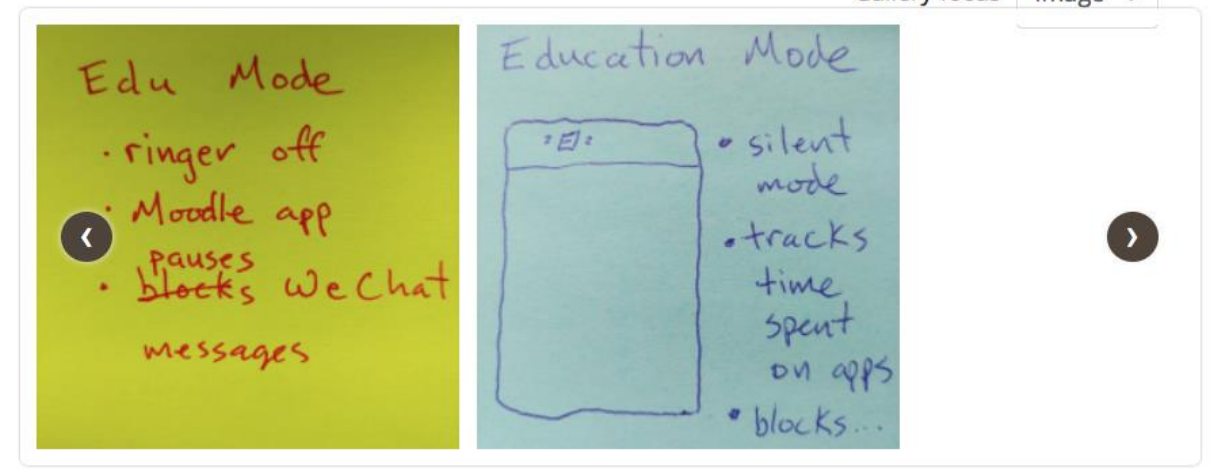 Edu Mode
· ringer off
· Moodle app
pauses
· blocks WeChat
messages
Education Mode
:E:
• silent
mode
• tracks
time
spent
on apps
• blocks...